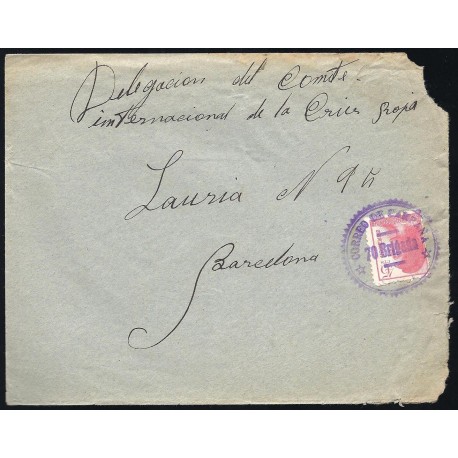 Delegacion del Comite
internacional de la Cruz Roja
Lauria Nº 95
Barcelona
CORREO DE CAMPAÑA
70 Brigada